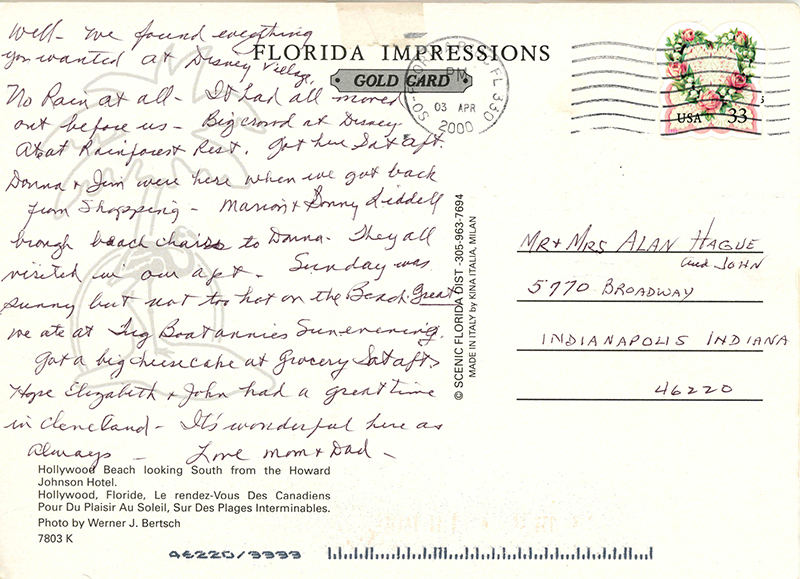 Well- We found everything
you wanted at Disney Village.
No Rain at all- It had all moved
out before us- Big crowd at Disney
At at Rainforest Rest. Got here Sat aft.
Donna & Jim were here when we got back
from Shopping- Marion & Sonny Liddell
brough beach chairs to Donna. They all
visited in our apt. Sunday was
sunny but not too hot on the Beach. Great
we ate at Tug Boat annies Sun evening.
Got a big cheesecake at Grocery Sat aft.
Hope Elizabeth & John had a great time
in Cleveland- It's wonderful here as
always- Love mom & Dad-
FLORIDA IMPRESSIONS
GOLD CARD
FL 330
PM
03 APR
2000
USA 33
© SCENIC FLORIDA DIST -305-963-7694
MADE IN ITALY by KINA ITALIA, MILAN
MR & MRS ALAN HAGUE
and JOHN
5770 BROADWAY
INDIANAPOLIS INDIANA
46220
Hollywood Beach looking South from the Howard
Johnson Hotel.
Hollywood, Floride, Le rendez-Vous Des Canadiens
Pour Du Plaisir Au Soleil, Sur Des Plages Interminables.
Photo by Werner J. Bertsch
7803 K
46220/9999